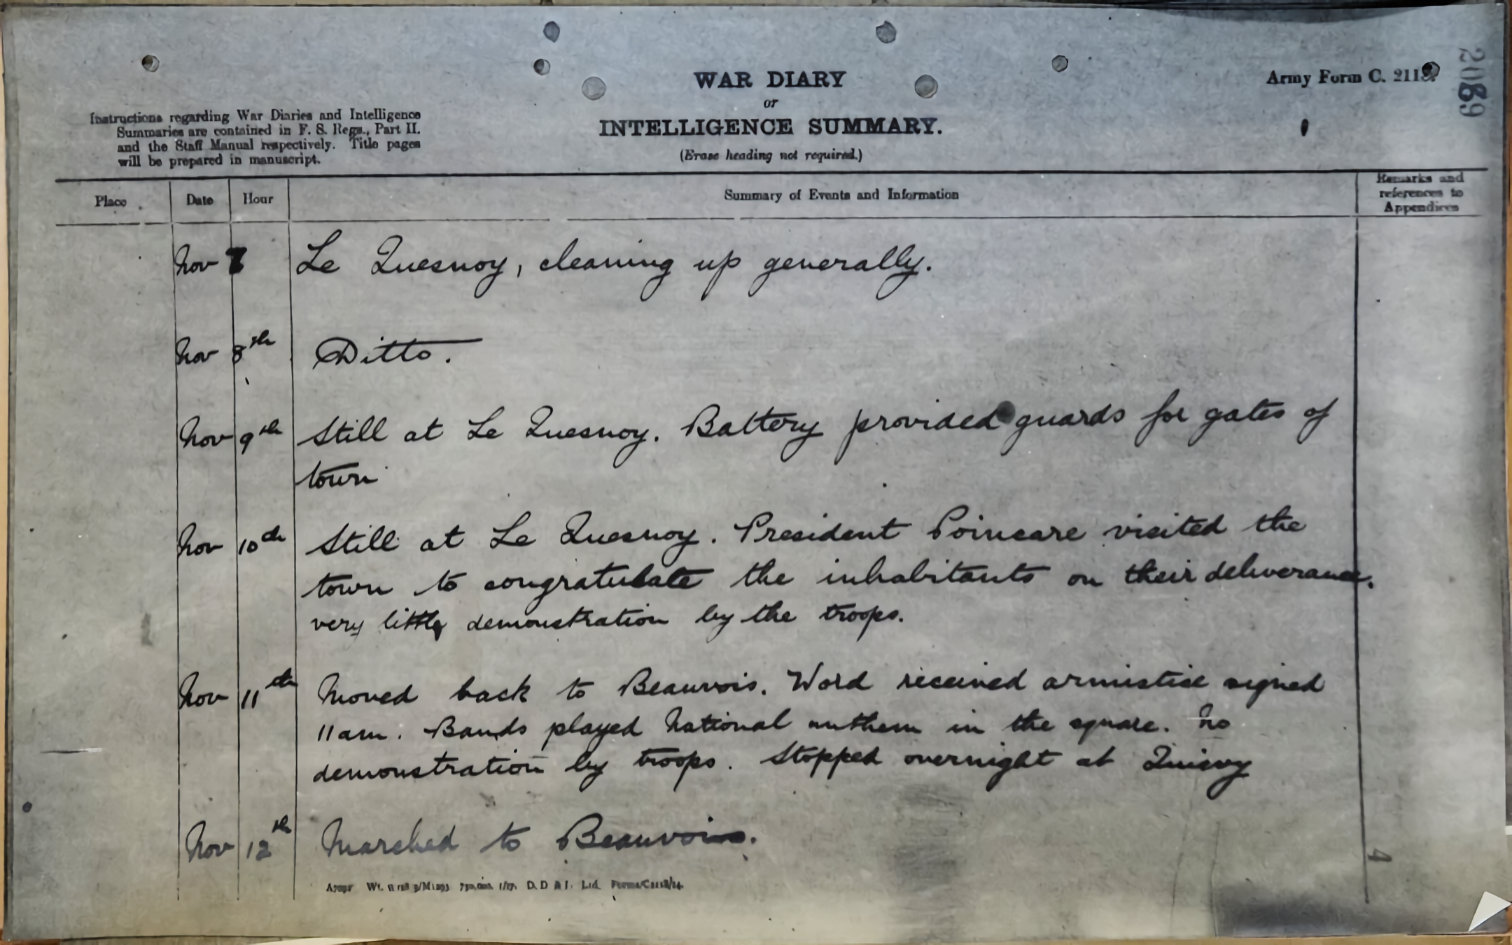 WAR DIARY
or
INTELLIGENCE SUMMARY.
(Erase heading not required.)
Army Form C. 2118.
2089
Instructions regarding War Diaries and Intelligence
Summaries are contained in F. S. Regs., Part II.
and the Staff Manual respectively. Title pages
will be prepared in manuscript.
Place Date Hour Summary of Events and Information Remarks and
references to
Appendices
Nov 7 Le Quesnoy, cleaning up generally.
Nov 8th Ditto.
Nov 9th Still at Le Quesnoy. Battery provided guards for gates of
town
Nov 10th Still at Le Quesnoy. President Poincare visited the
town to congratulate the inhabitants on their deliverance.
very little demonstration by the troops.
Nov 11th Moved back to Beauvois. Word received armistice signed
11am. Bands played National anthem in the square. No
demonstration by troops. Stopped overnight at Quievy
Nov 12th Marched to Beauvois.
D. D & L. Ltd.
4